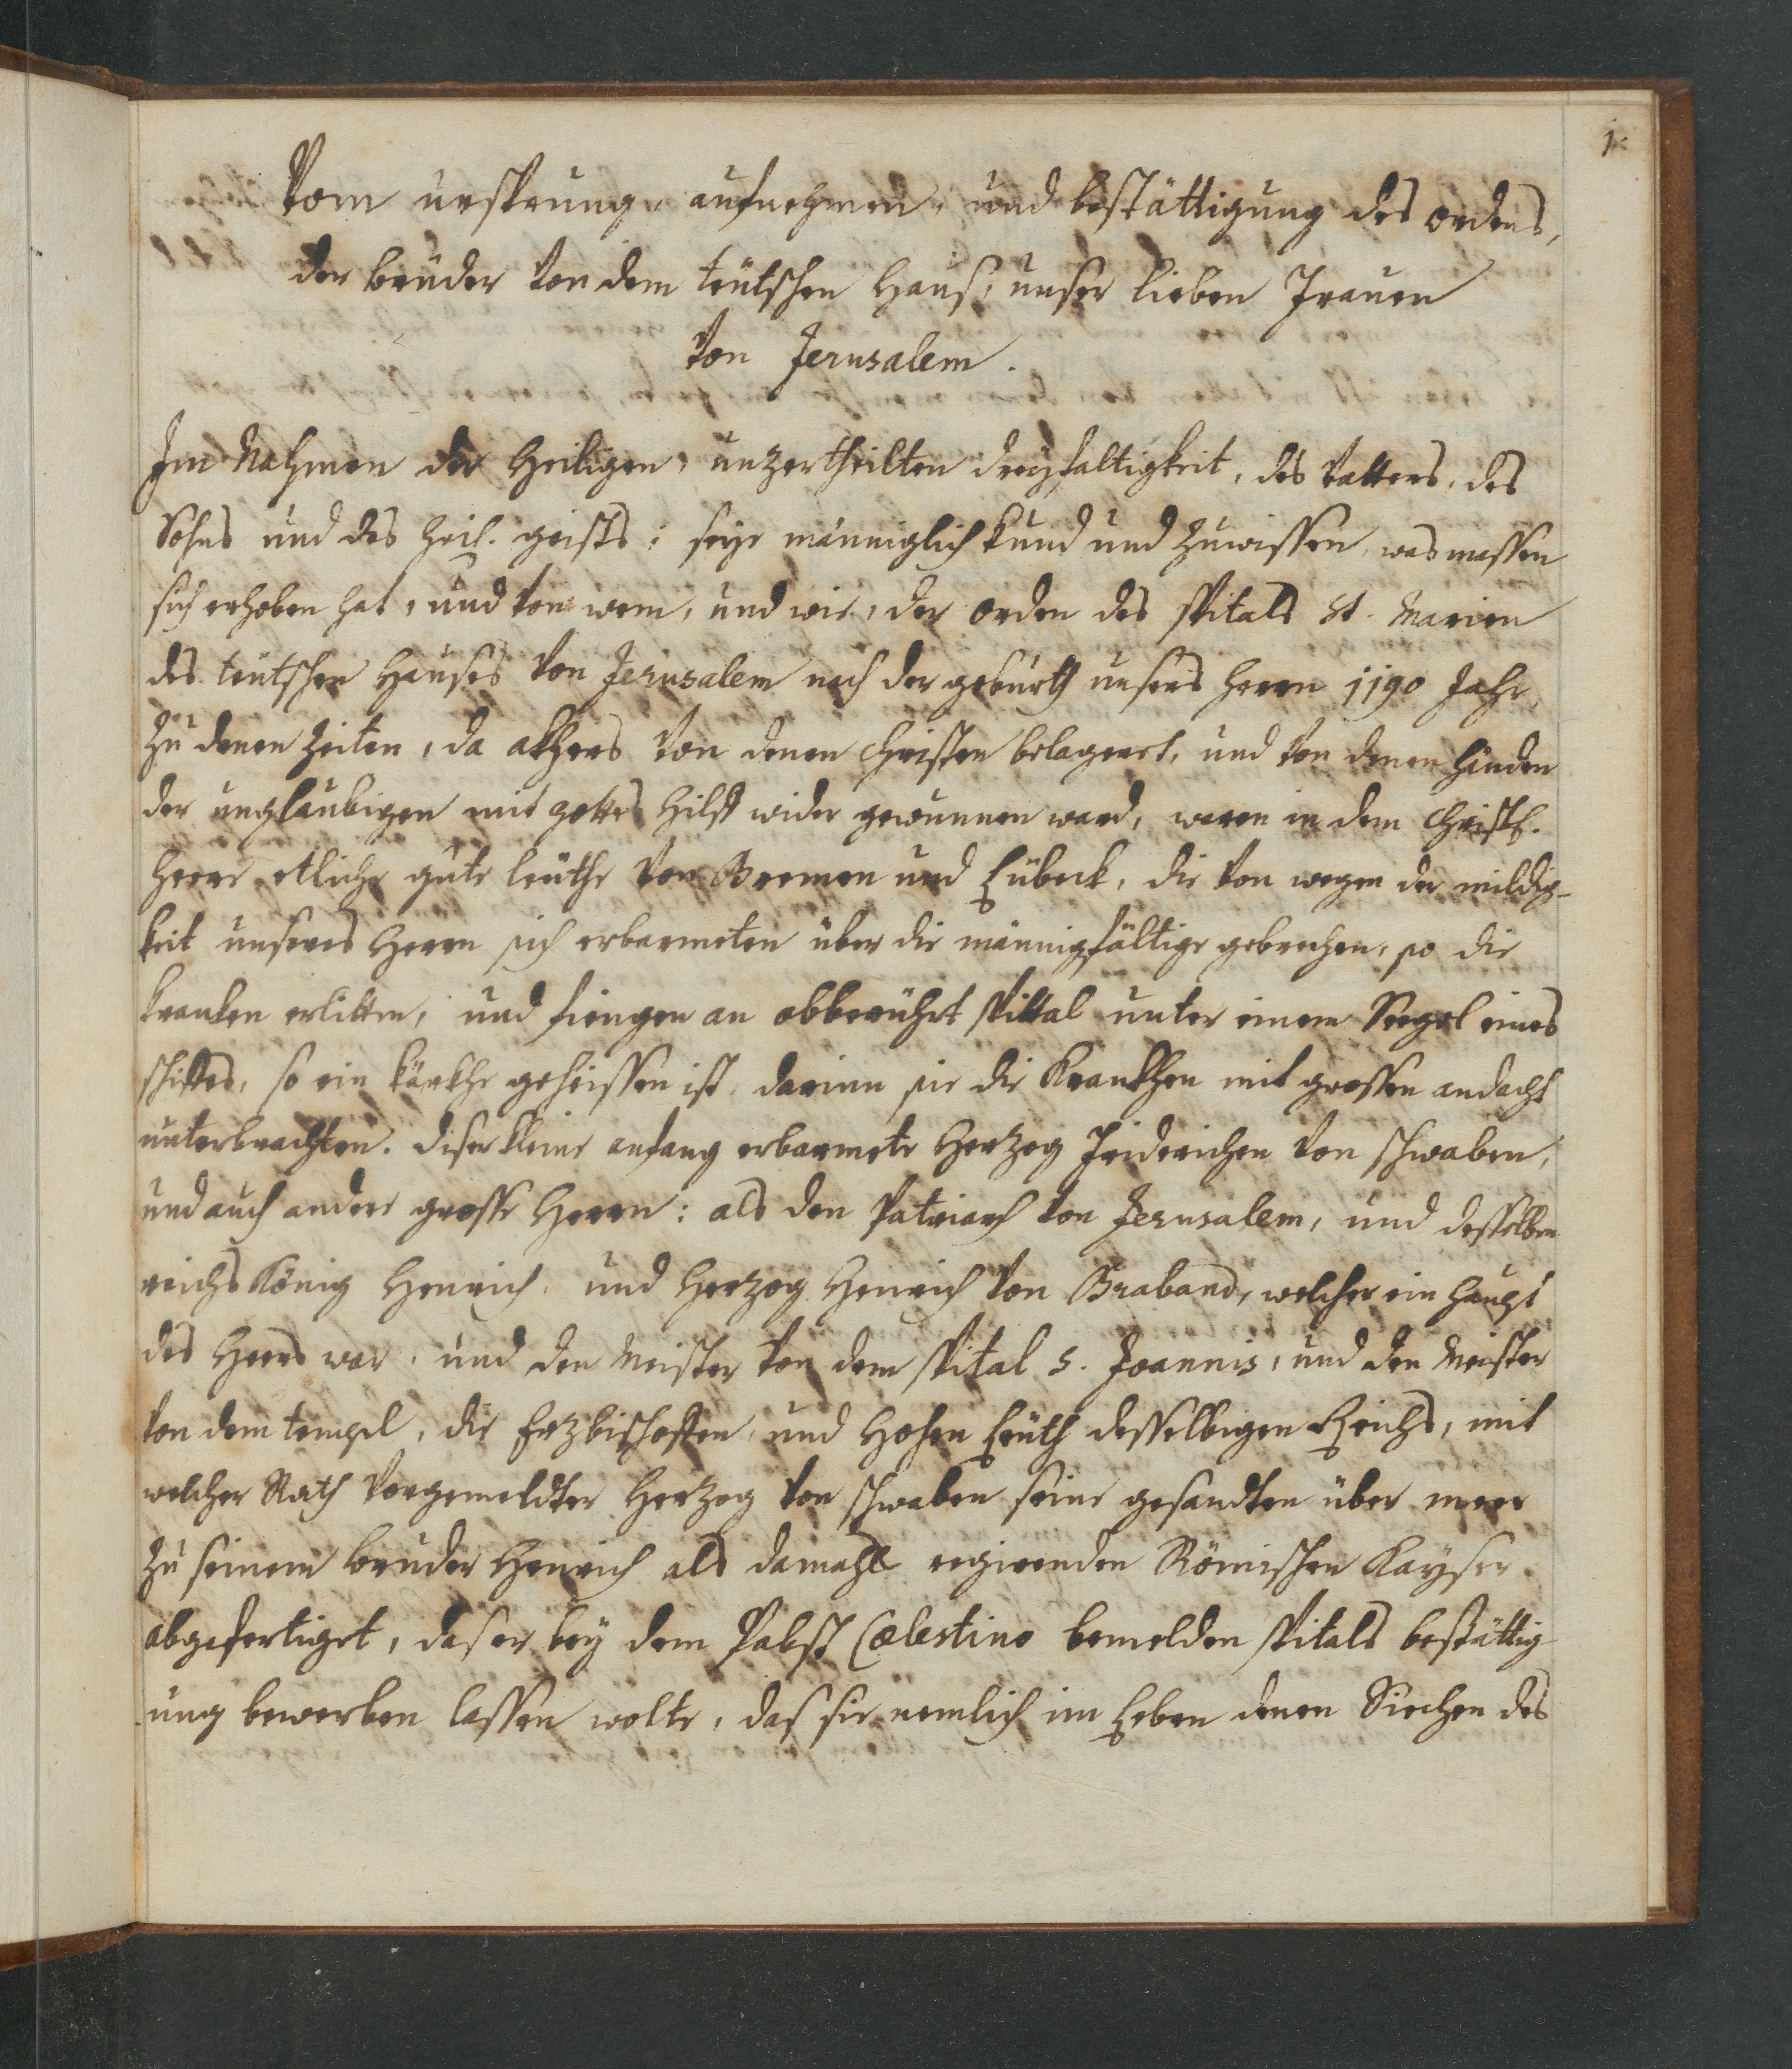 1.
Vom ursprung, aufnehmen, und bestättigung des ordens,
der brüder von dem teütschen Hauß, unser lieben Frauen
von Jerusalem.
Im Nahmen der Heiligen, unzertheilten dreyfaltigkeit, des Vatters, des
Sohns und des heil. geists; seye männiglich kund und zuwissen, was massen
sich erhoben hat, und von wem, und wie, der orden des spitals St. Marien
des teütschen Hauses von Jerusalem nach der geburth unsers Herrn 1190 Jahr,
zu denen zeiten, da akhers von denen Christen belagert, und von denen händen
der unglaubigen mit gottes Hilff wider gewunnen ward, waren in dem Christl.
Heere etliche gute leüthe von Bremen und Lübeck, die von wegen der mildig-
keit unseres Herrn sich erbarmeten über die männigfältige gebrechen, so die
kranken erlitten, und fiengen an obberührt spittal unter einem Seegel eines
schiffes, so ein kärkhe geheissen ist, darinn sie die Krankhen mit grossen andacht
unterbrachten. diser kleine anfang erbarmete Hertzog Friderichen von schwaben,
und auch andere grosse Herrn: als den Patriarch von Jerusalem, und desselben
reichs König Henrich, und Hertzog Henrich von Braband, welcher ein haupt
des Heers war, und den Meister von dem spital S. Joannis, und den Meister
von dem tempel, die Ertzbischoffen, und hohen Leüth desselbigen Reichs, mit
welcher Rath vorgemeldter Hertzog von schwaben seine gesandten über meer
zu seinem bruder Henrich als damahls regirenden Römischen Kayser
abgefertiget, das er bey dem Pabst Cœlestino bemelden spitals bestättig
ung bewerben lassen wolte, daß sie nemlich im Leben denen Siechen des